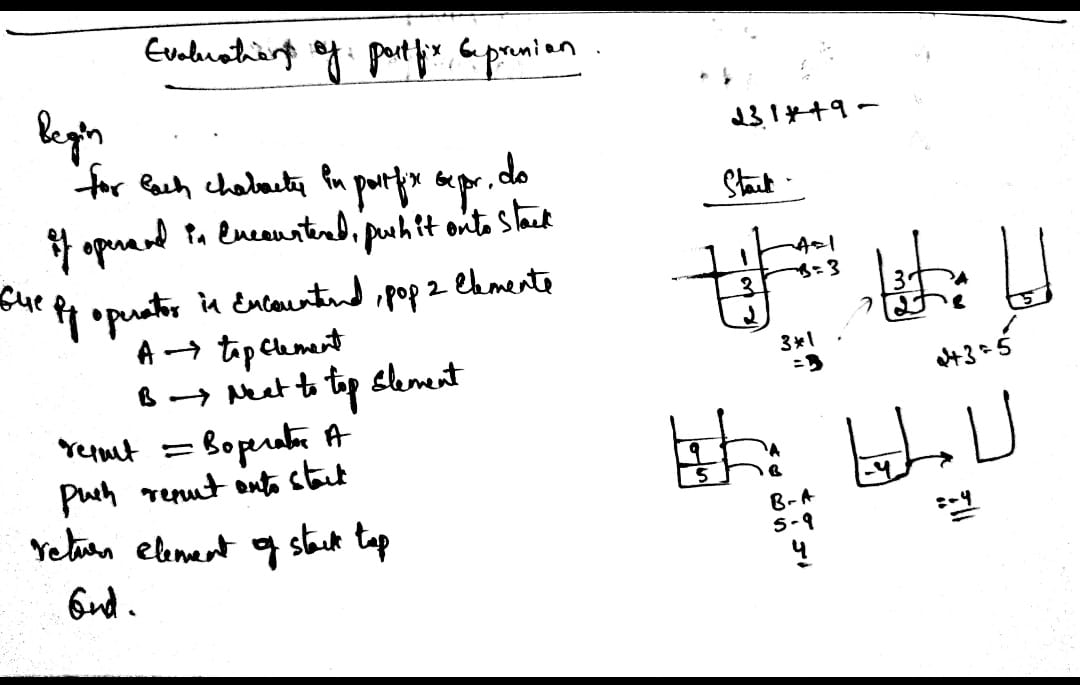 Evaluation of postfix Expression.
Begin
for each character in postfix expr, do
if operand is encountered, push it onto stack
else if operator is encountered, pop 2 elements
A → top element
B → Next to top element
result = B operator A
push result onto stack
return element of stack top
End.
231*+9-
Stack
1
3
2
A=1
B=3
3*1
=3
3
2
A
B
5
2+3=5
9
5
A
B
B-A
5-9
4
-4
=-4